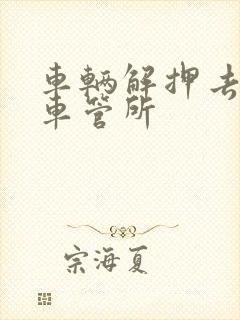 車輛解押去
車管所
宗海夏